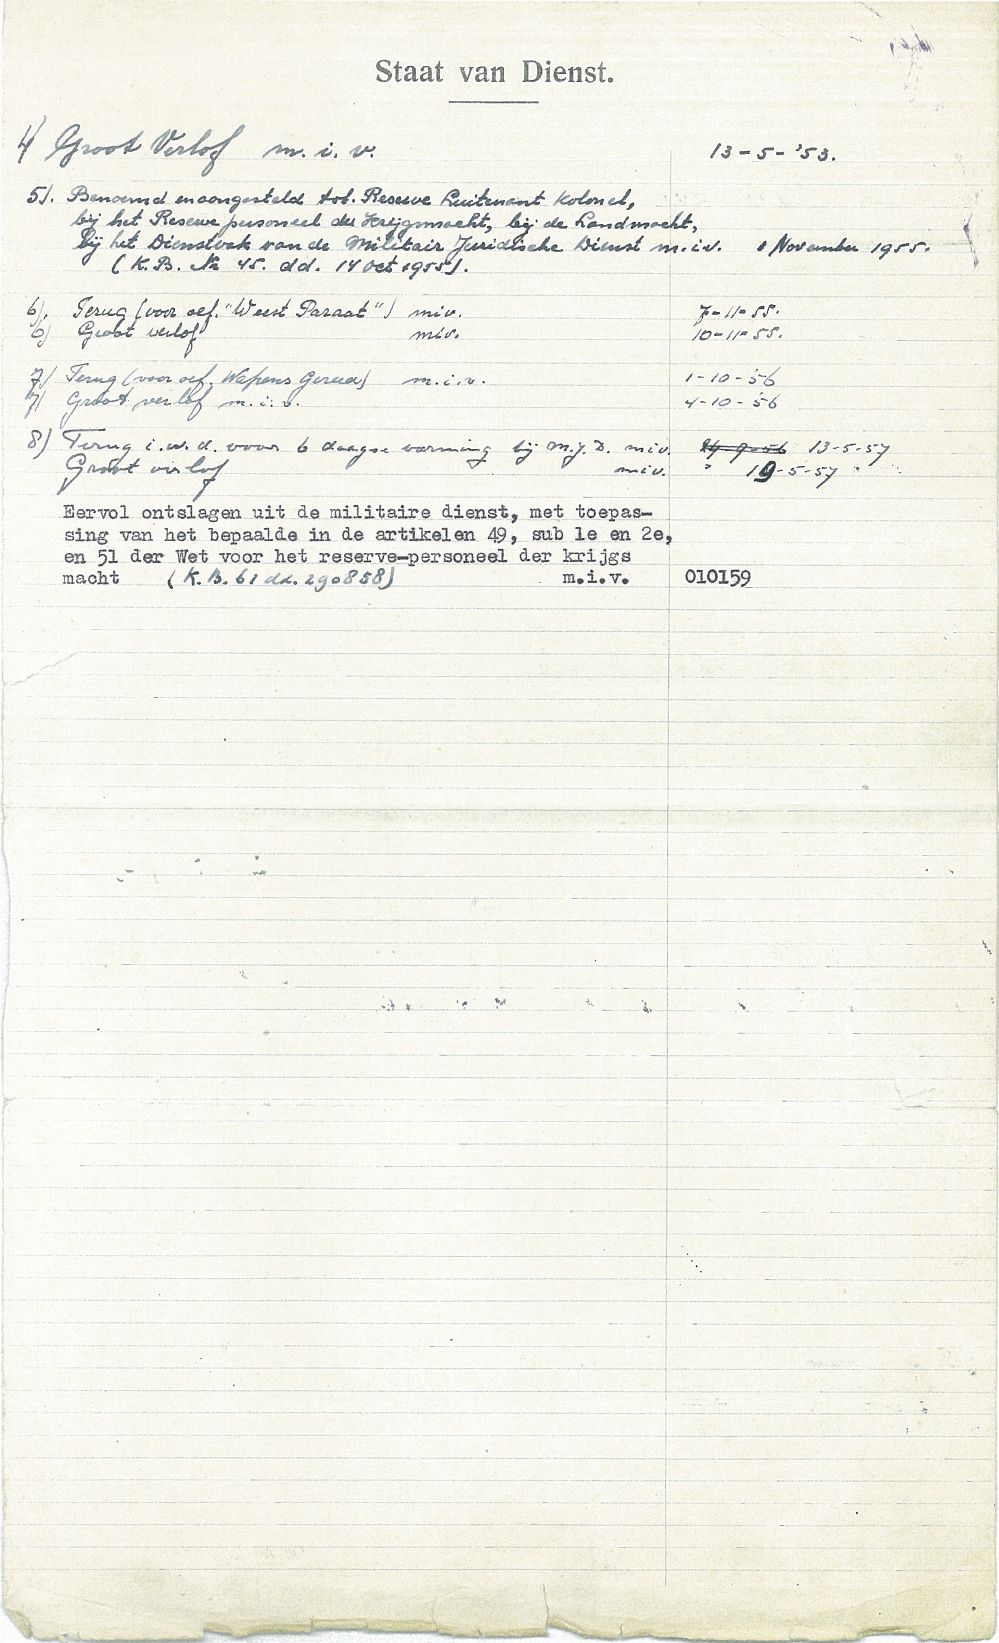 Staat van Dienst.
4) Groot Verlof m. i. v. 13-5-'53.
5). Benoemd en aangesteld tot. Reserve Luitenant Kolonel,
bij het Reserve personeel der Krijgsmacht, bij de Landmacht,
bij het Dienstvak van de Militair Juridische Dienst m.i.v. 1 November 1955.
(K.B. No 45. dd. 14 Oct 1955).
6). Terug (voor oef. "Weest Paraat") miv. 7-11-55.
6) Groot verlof miv. 10-11-55.
7) Terug (voor oef. Wapens Gereed) m.i.v. 1-10-56
7) Groot verlof m.i.v. 4-10-56
8) Terug i.w.d. voor 6 daagse vorming bij M.J.D. miv. 24-9-56 13-5-57
Groot verlof miv. " 19-5-57 "
Eervol ontslagen uit de militaire dienst, met toepas-
sing van het bepaalde in de artikelen 49, sub 1e en 2e,
en 51 der Wet voor het reserve-personeel der krijgs
macht (K.B. 61 dd. 290858) m.i.v. 010159